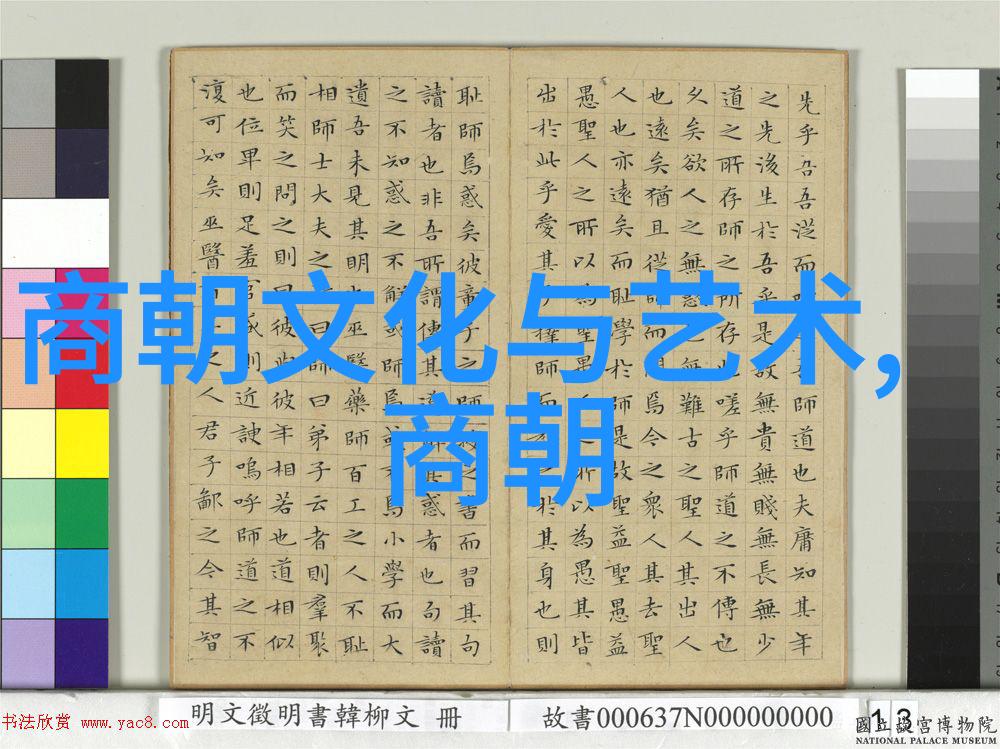 商朝文化与艺术,
商朝
先乎吾吾從而師道也夫庸知其年
之先後生於吾乎是故無貴無賤無長無少
道之所存師之所存也嗟乎師道之不傳也
久矣欲人之無惑也無難古之聖人其出人
也遠矣猶且從師而焉今之衆人其去聖
人也亦遠矣而恥學於師是故聖益聖愚益
愚聖人之所以為聖愚人所以為愚其皆
出於此乎愛其子擇師而之於其身也則
恥師焉惑矣彼童子之師之書而習其句
讀者也非吾所謂傳其道解其惑者也句讀
之不知惑之不解或師焉或不焉小學而大
遺吾未見其明也巫醫藥師百工之人不恥
相師士大夫之曰師曰弟子云者則羣聚
而笑之問之則曰彼彼年相若也道相似
也位卑則足羞官則近諛嗚呼師道之不
復可知矣巫醫之人君子鄙之今其智
明文徵明書韓柳文 冊
故書000637N000000000
13
书法欣赏 www.yac8.com
國立故宮博物院
NATIONAL PALACE MUSEUM